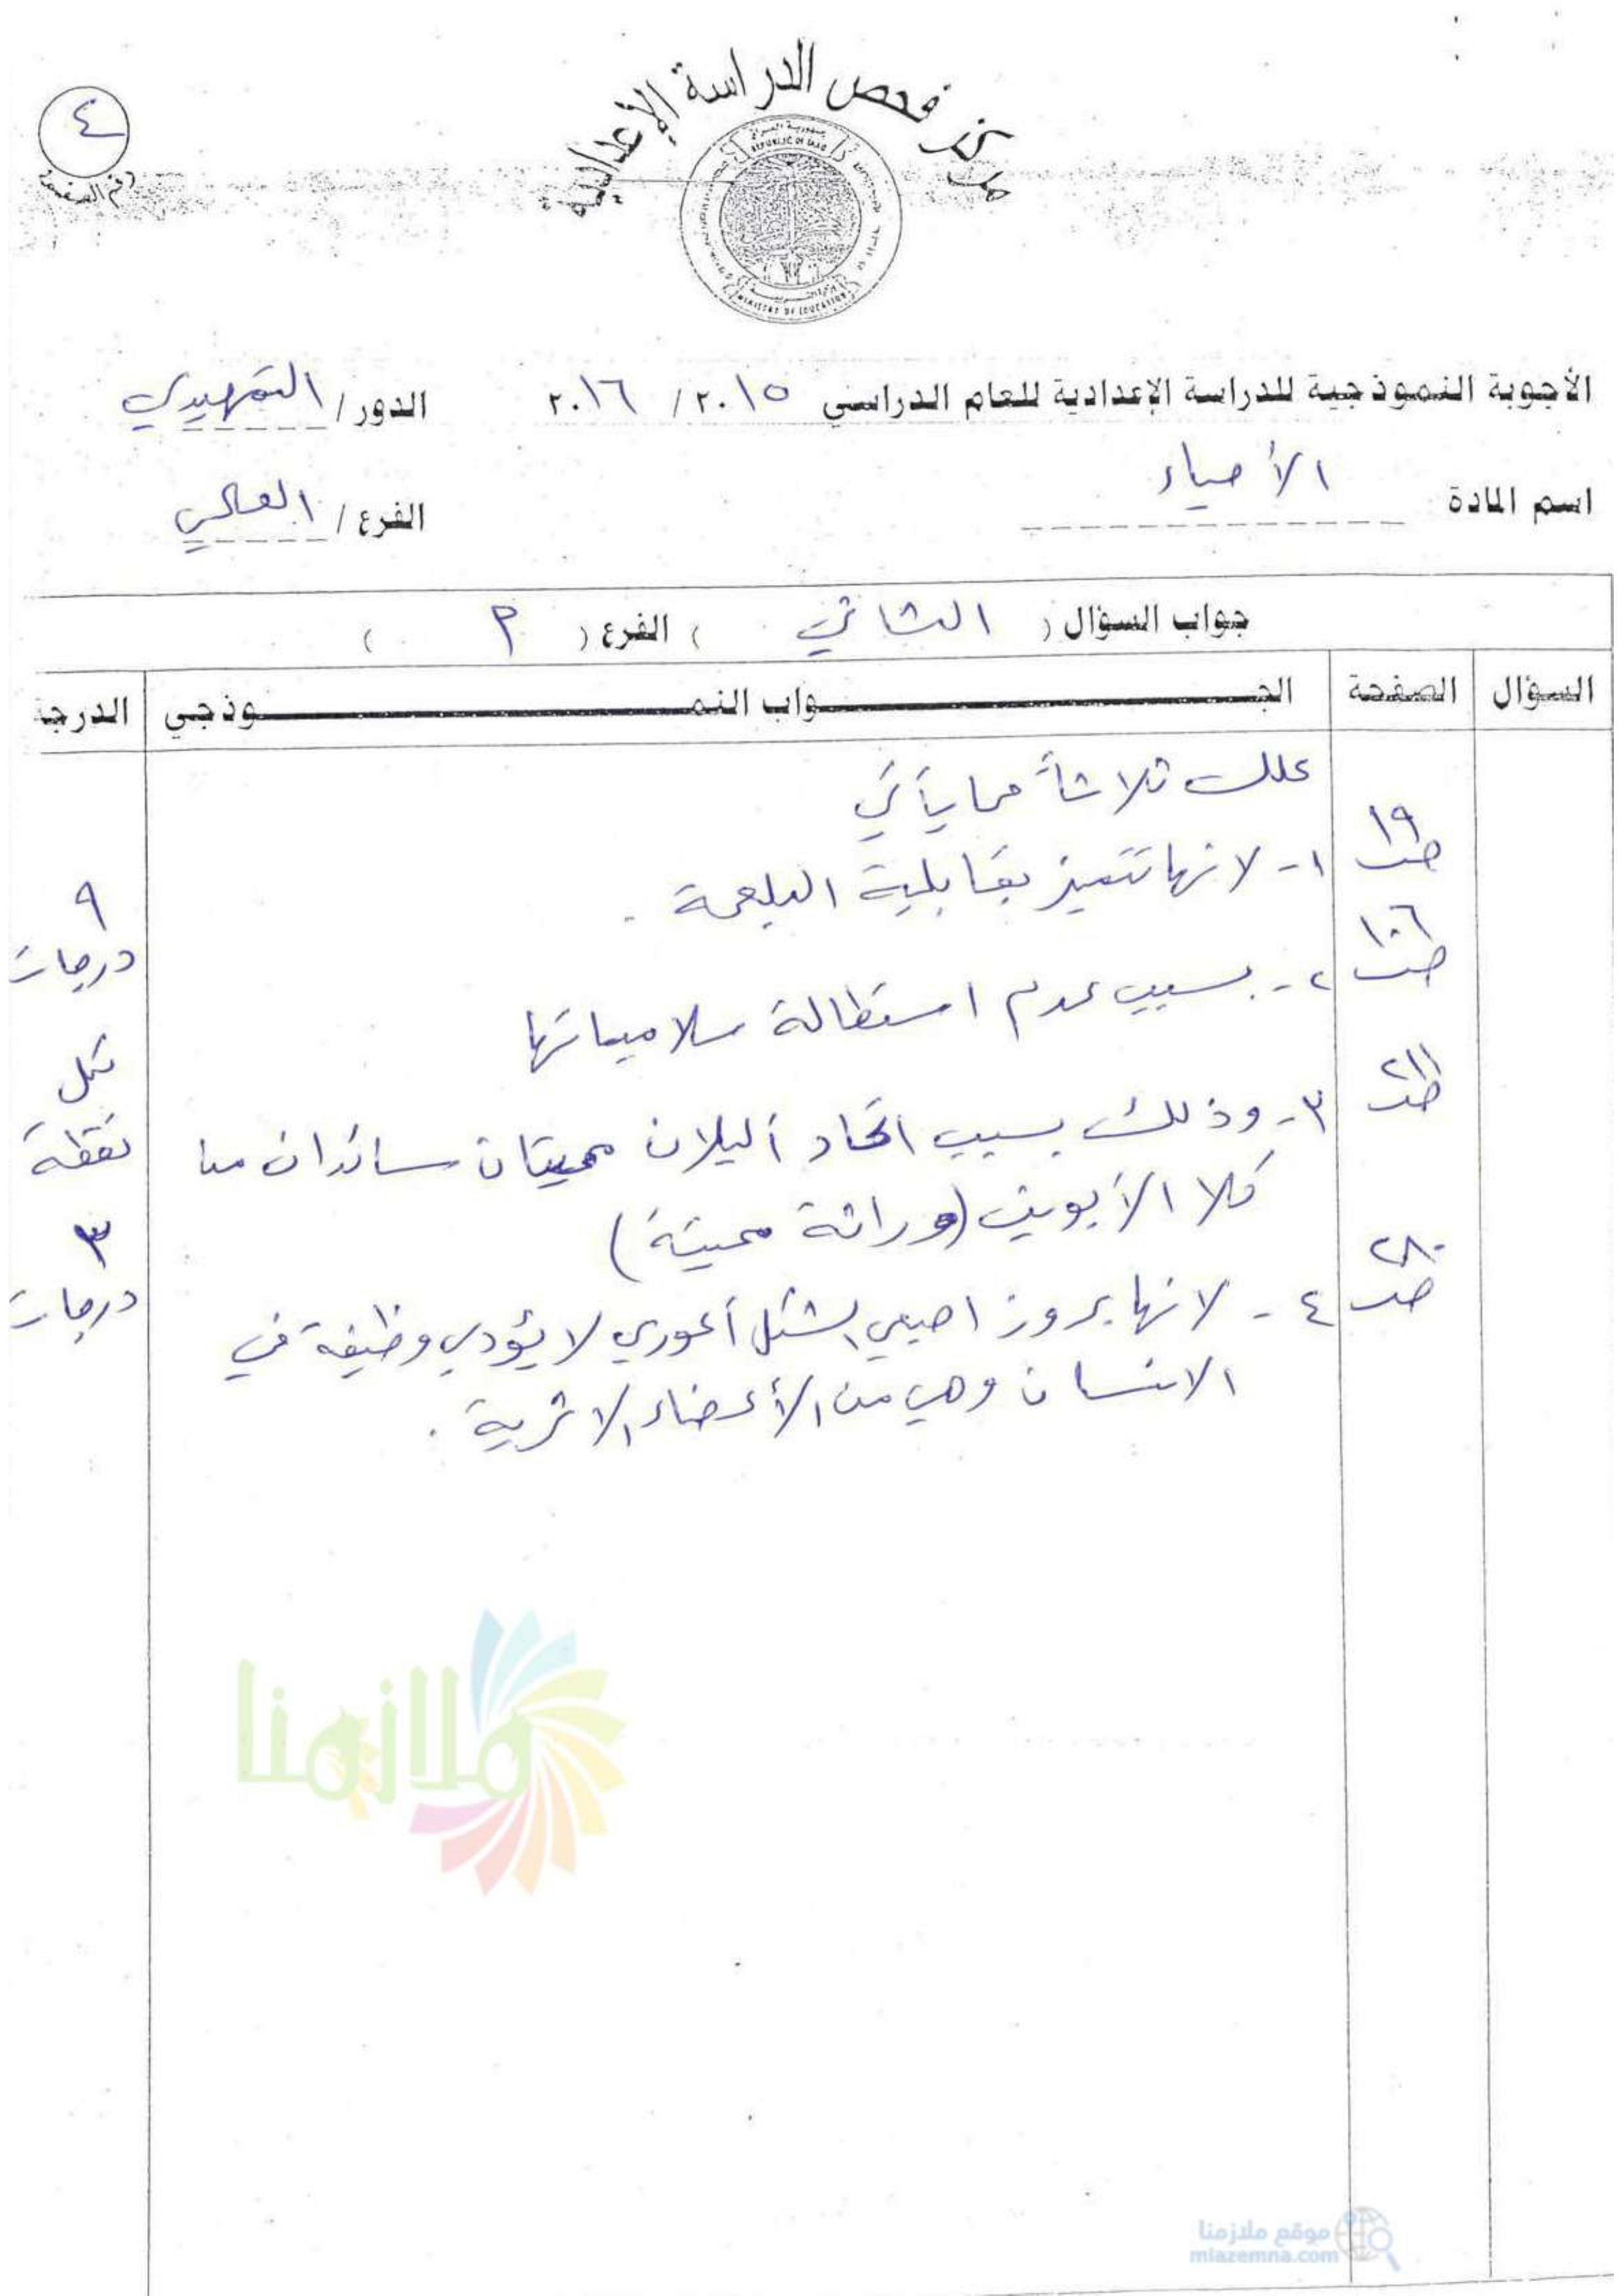 مركز فحص الدراسة الإعدادية
جمهورية العراق
REPUBLIC OF IRAQ
MINISTRY OF EDUCATION
٤
رقم الصفحة
الأجوبة النموذجية للدراسة الإعدادية للعام الدراسي ٢٠١٥ / ٢٠١٦ الدور / التمهيدي
اسم المادة الأحياء الفرع / العلمي
جواب السؤال ( الثاني ) الفرع ( P )
السؤال الصفحة الجـــواب النمـــوذجي الدرجة
علل ثلاثاً مما يأتي
ص١٩ ١- لانها تتميز بقابلية البلعمة .
٩ درجات
ص١٠٦ ٢- بسبب عدم استطالة سلامياتها
لكل نقطة
ص٢١١ ٣- وذلك بسبب اتحاد أليلان مميتان سائدان من
كلا الأبوين (وراثة مميتة)
٣ درجات
ص٢٨٠ ٤- لانها بروز اصبعي الشكل أعوري لا يؤدي وظيفة في
الانسان وهي من الأعضاء الاثرية .
ملازمنا
موقع ملازمنا
mlazemna.com